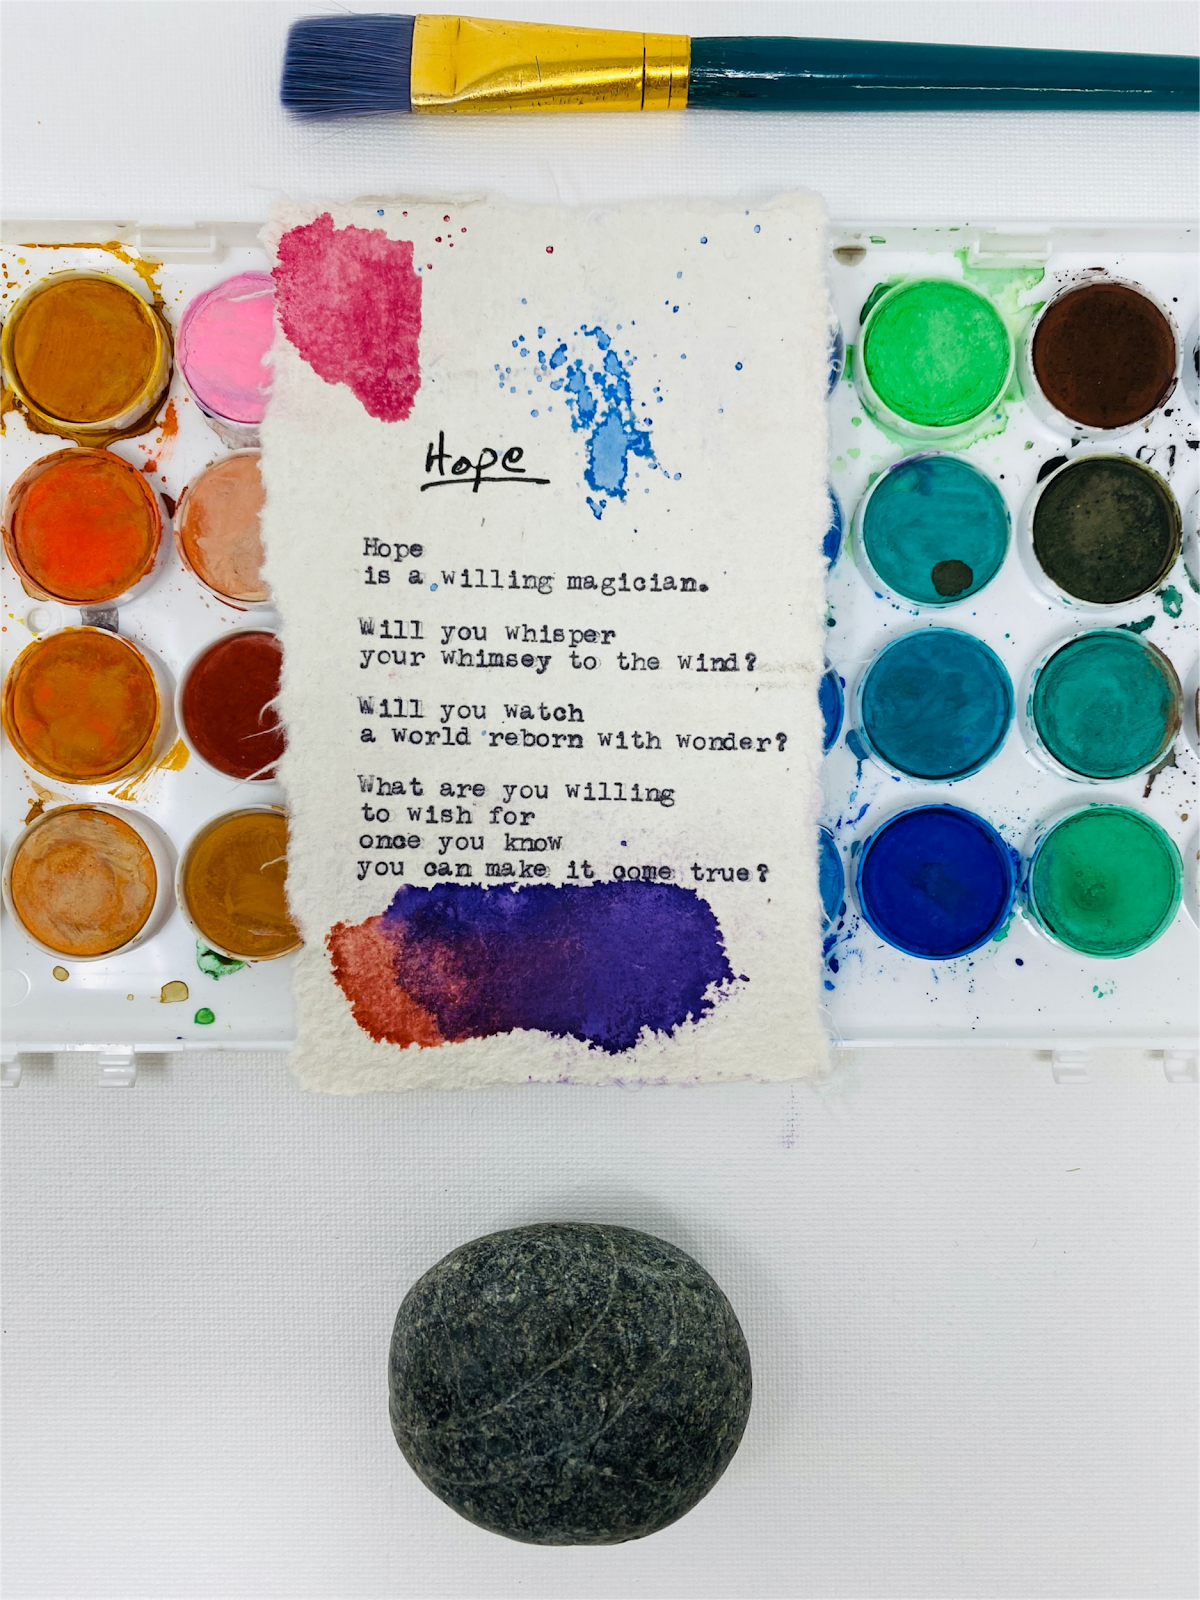 Hope
Hope
is a willing magician.
Will you whisper
your whimsey to the wind?
Will you watch
a world reborn with wonder?
What are you willing
to wish for
once you know
you can make it come true?